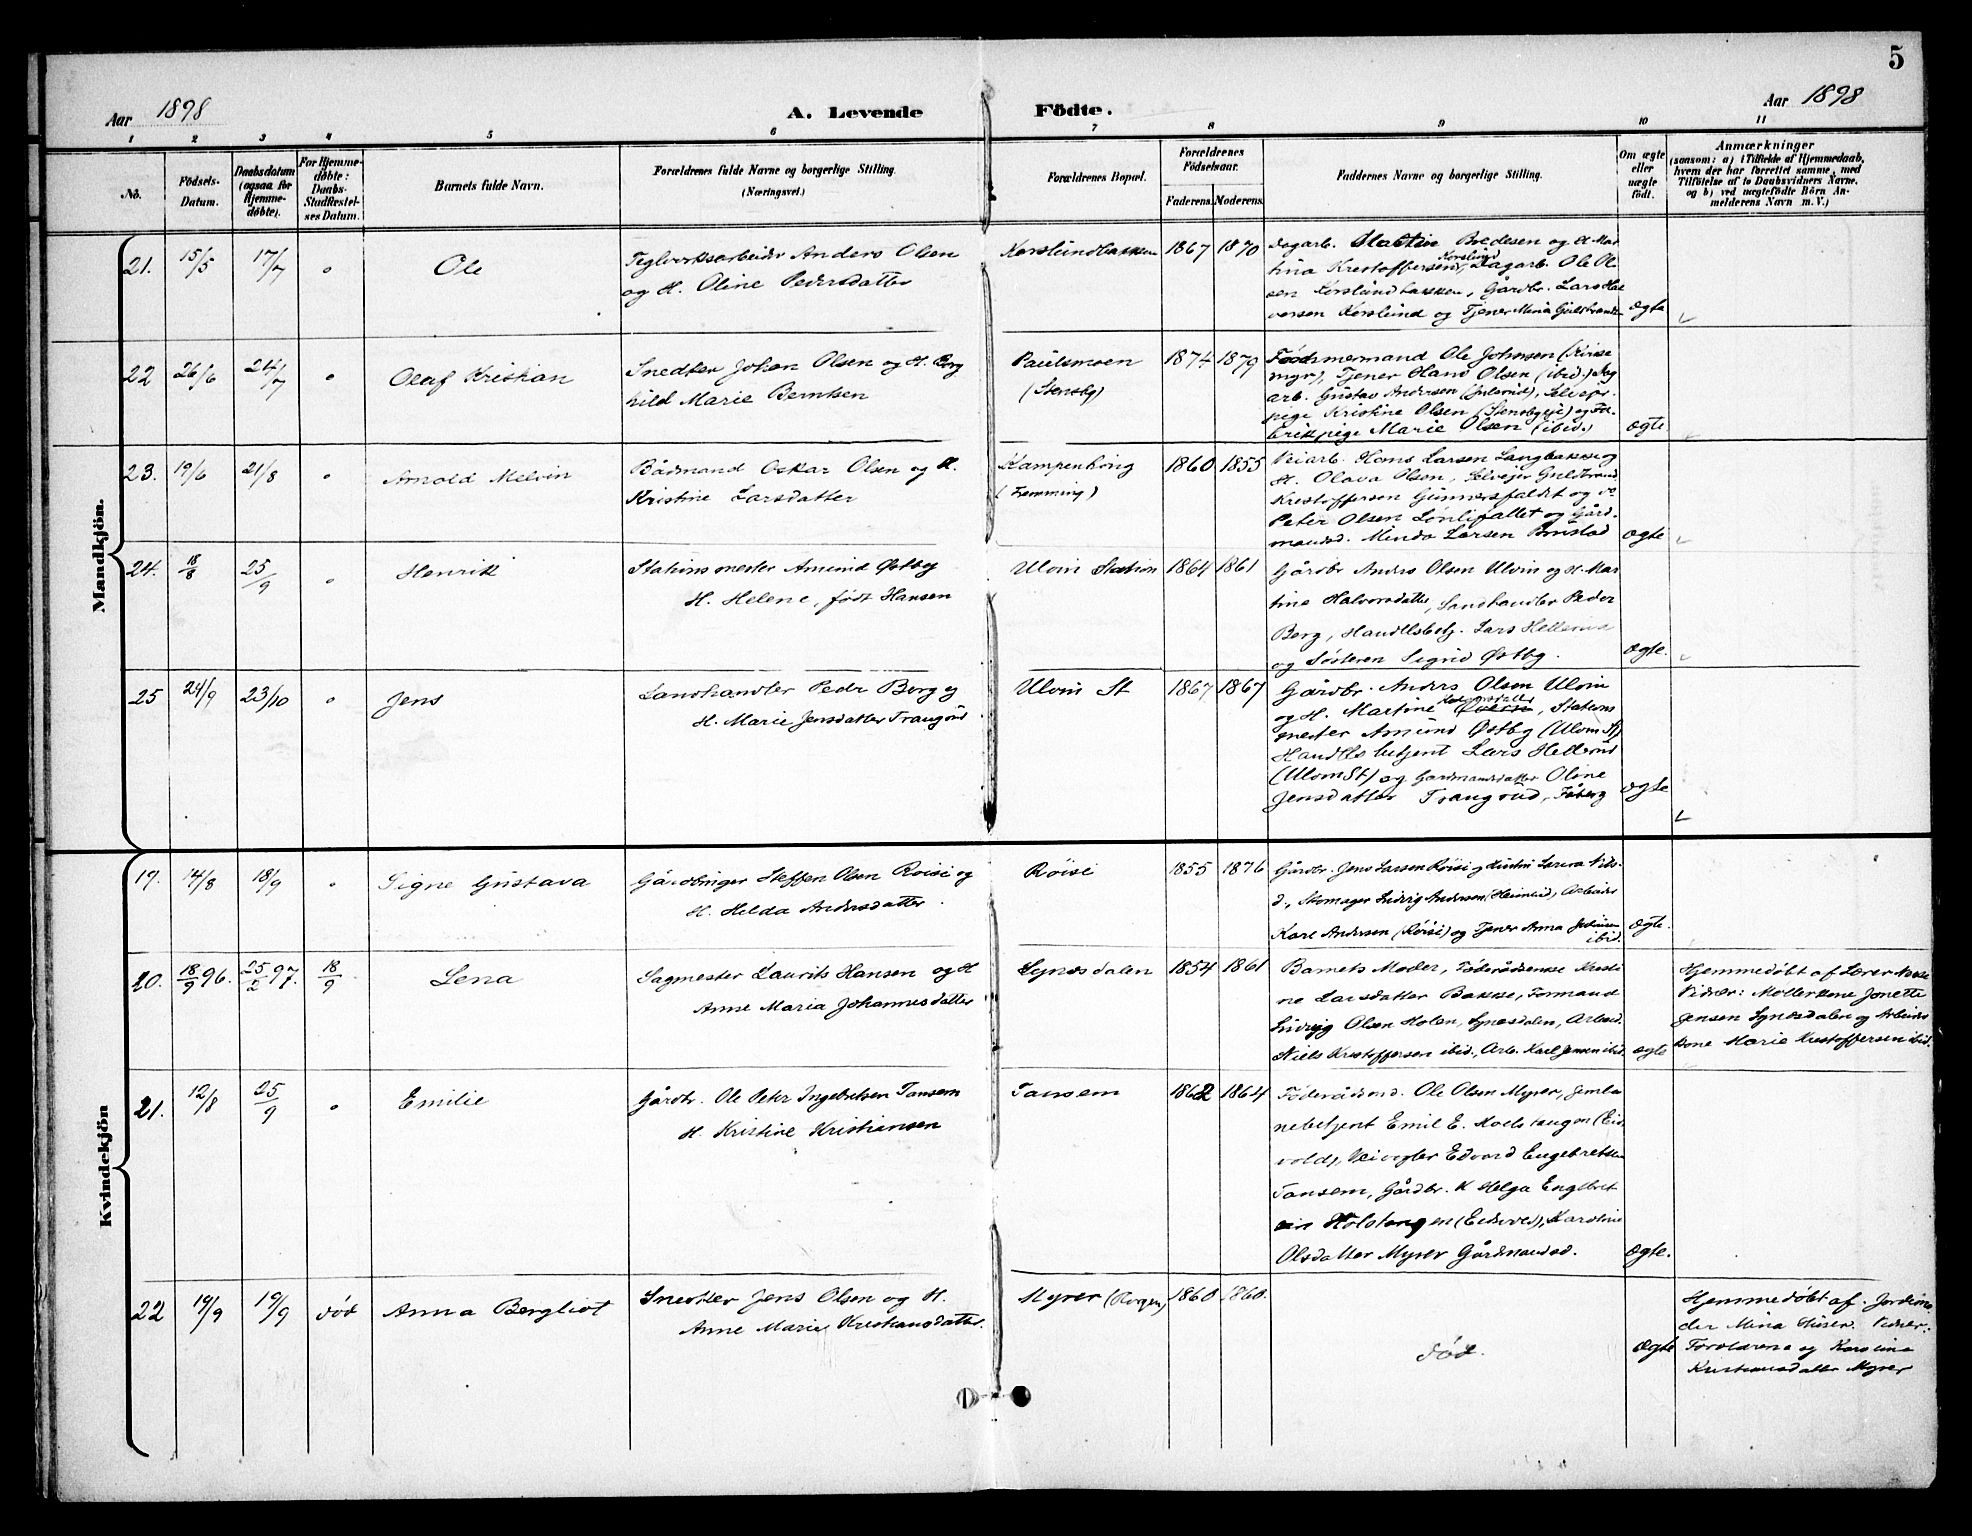 5
Aar 1898 A. Levende Födte. Aar 1898
1 2 3 4 5 6 7 8 9 10 11
No.
Födsels-
Datum.
Daabsdatum
(ogsaa for
Hjemme-
döbte).
For Hjemme-
döbte:
Daabs-
Stadfæstel-
ses Datum.
Barnets fulde Navn.
Forældrenes fulde Navne og borgerlige Stilling.
(Næringsvei.)
Forældrenes Bopæl.
Forældrenes
Födselsaar.
Faderens. Moderens.
Faddernes Navne og borgerlige Stilling.
Om ægte
eller
uægte
født.
Anmærkninger
(saasom: a) i Tilfælde af Hjemmedaab,
hvem der har forrettet samme, med
Tilföielse af to Daabsvidners Navne,
og b) ved uægtefödte Börn An-
melderens Navn m. V.)
Mandkjön.
21. 15/5 17/7 " Ole
Teglverksarbeider Anders Olsen
og H. Oline Pedersdatter
Korslundbakken 1867 1870
Dagarb. Martin Bredesen og H Mar
tina Kristoffersen, Korslund Dagarb. Ole Ol
sen Korslundbakken, Gårdbr. Lars Hal
vorsen Korslund og Tjener Mina Guldbrands
ægte
22 26/6 24/7 " Olaf Kristian
Snedker Johan Olsen og H. Borg
hild Marie Berntsen
Paulsmoen
(Stensby)
1874 1879
Tømmermand Ole Johnsen (Kirke
myr), Tjener Hans Olsen (ibid.) Dag
arb. Gustav Andersen (Julsrud), Selveier-
pige Kristine Olsen (Stensbyeje) og Fa-
brikpige Marie Olsen (ibid.)
ægte.
23. 19/6 21/8 " Arnold Melvin
Bådmand Oskar Olsen og H.
Kristine Larsdatter
Kampenhong
(Femming)
1860 1855
Veiarb. Hans Larsen Langbakke og
H. Olava Olsen, Selveier Guldbrand
Kristoffersen Gunnersfaldet og
Peter Olsen Lønlifallet og Gård-
mandsd. Minda Larsen Brustad
ægte
24. 18/8 25/9 " Henrik
Stationsmester Amund Østby
H. Helene, født Hansen
Ulvin Station 1864 1861
Gårdbr Anders Olsen Ulvin og H. Mar
tine Halvorsdatter, Landhandler Peder
Berg, Handelsbetj. Lars Hellerud
og Søsteren Sigrid Østby.
ægte.
25 24/9 23/10 " Jens
Landhandler Peder Berg og
H. Marie Jensdatter Traugrud
Ulvin St 1867 1867
Gårdbr. Anders Olsen Ulvin
og H. Martine Halvorsdatter, Stations
mester Amund Østby (Ulvin St)
Handelsbetjent Lars Hellerud
(Ulvin St) og Gardmandsdatter Oline
Jensdatter Traugrud, Fåberg
ægte
Kvindekjön
19. 14/8 18/9 " Signe Gustava
Gårdbruger Steffen Olsen Roise og
H. Helda Andersdatter.
Röise 1855 1876
Gårdbr. Jens Larsen Röise og Hustru Laura Nils-
d., Skomager Ludvig Andersen (Heimlid), Arbeider
Karl Andersen (Röise) og Tjener Anna
ibid.
ægte.
20. 18/9 96. 25/2 97. 18/9 Lena
Sagmester Laurits Hansen og H
Anne Maria Johannesdatter
Lynesdalen 1854 1861
Barnets Moder, Føderådsenke Kristi
ne Larsdatter Bakke, Formand
Ludvig Olsen Holen, Lynesdalen, Arbeid.
Niels Kristoffersen ibid., Arb. Karl Jensen ibid.
ægte
Hjemmedøbt af Lærer Næsse
Vidner: Møllerkone Jonette
Jensen Lynesdalen og Arbeider
kone Marie Kristoffersen ibid.
21. 12/8 25/9 " Emilie
Gårdbr. Ole Peter Ingebretsen Tansem
H. Kristine Kristiansen
Tansem 1862 1864
Føderådsmd. Ole Olsen Myrer, Jernba
nebetjent Emil E. Holstangen (Eid
vold), Veivogter Edvard Engebretsen
Tansem, Gårdbr. K Helga Engebret
sen Holstangen (Eidsvold), Karoline
Olsdatter Myrer Gårdmandsd.
ægte.
22 14/9 19/9 død Anna Bergliot
Snedker Jens Olsen og H.
Anne Marie Kristiansdatter.
Myrer (Rorgen) 1860 1860.
død.
ægte
Hjemmedøbt af Jordemo
der Mina Huser. Vidner:
Forældrene og Karoline
Kristiansdatter Myrer